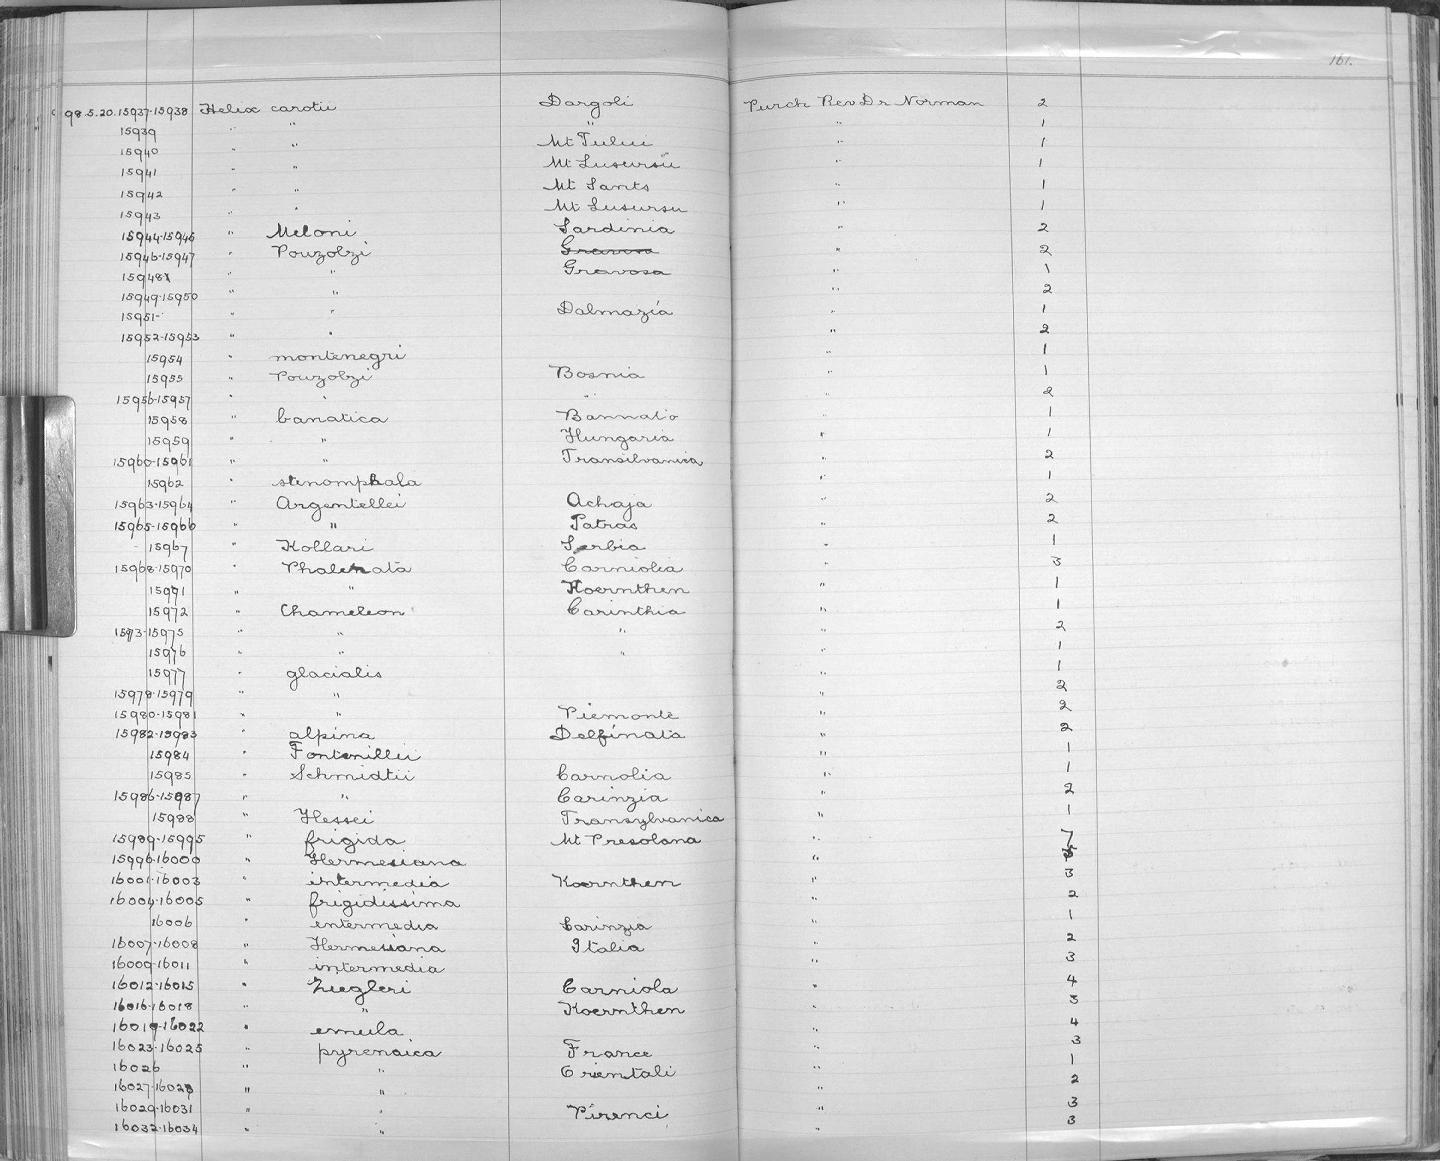 161.
98.5.20.15937-15938 Helix carotii Dorgoli Purch Rev Dr Norman 2
15939 " " " " 1
15940 " " Mt Tului " 1
15941 " " Mt Lusursü " 1
15942 " " Mt Sants " 1
15943 " " Mt Lusursu " 1
15944-15945 " Meloni Sardinia " 2
15946-15947 " Pouzolzi Gravosa " 2
15948 " " Gravosa " 1
15949-15950 " " " 2
15951- " " Dalmazia " 1
15952-15953 " " " 2
15954 " montenegri " 1
15955 " Pouzolzi Bosnia " 1
15956-15957 " " " " 2
15958 " banatica Bannato " 1
15959 " " Hungaria " 1
15960-15961 " " Transilvanica " 2
15962 " stenomphala " 1
15963-15964 " Argentellei Achaja " 2
15965-15966 " " Patras " 2
15967 " Kollari Serbia " 1
15968-15970 " Phalerata Carniolia " 3
15971 " " Koernthen " 1
15972 " Chameleon Carinthia " 1
1573-15975 " " " " 2
15976 " " " " 1
15977 " glacialis 1
15978-15979 " " " 2
15980-15981 " " Piemonte " 2
15982-15983 " alpina Delfinata " 2
15984 " Fontenillii " 1
15985 " Schmidtii Carnolia " 1
15986-15987 " " Carinzia " 2
15988 " Hessei Transylvanica " 1
15989-15995 " frigida Mt Presolana " 7
15996-16000 " Hermesiana " 5
16001-16003 " intermedia Koernthen " 3
16004-16005 " frigidissima " 2
16006 " entermedia Carinzia " 1
16007-16008 " Hermesiana Italia " 2
16009-16011 " intermedia " 3
16012-16015 " Ziegleri Carniola " 4
16016-16018 " " Koernthen " 3
16019-16022 " emula " 4
16023-16025 " pyrenaica France " 3
16026 " " Orientali " 1
16027-16028 " " " 2
16029-16031 " " Pirenci " 3
16032-16034 " " " 3